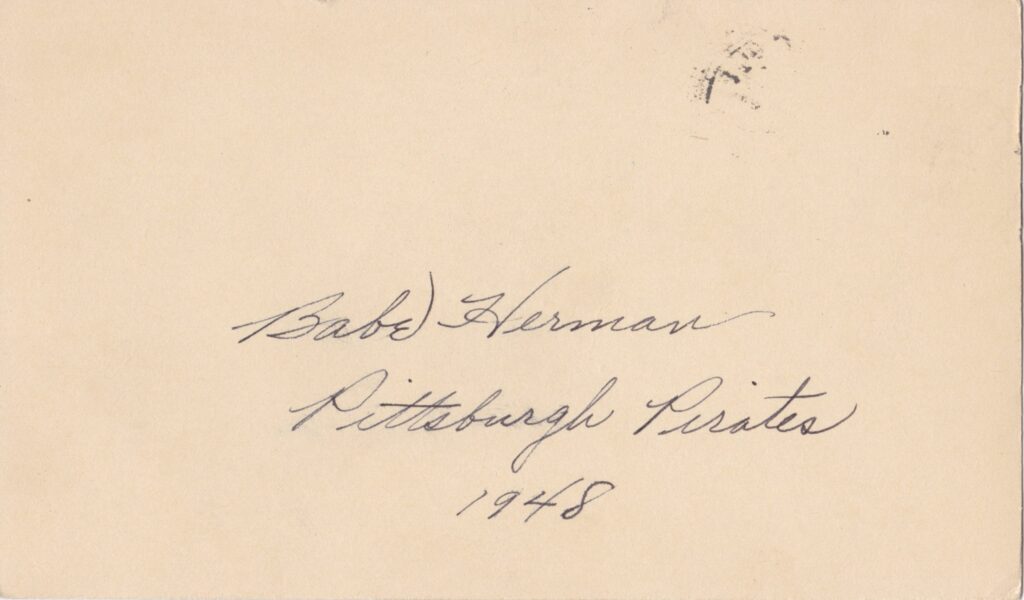 Babe Herman
Pittsburgh Pirates
1948